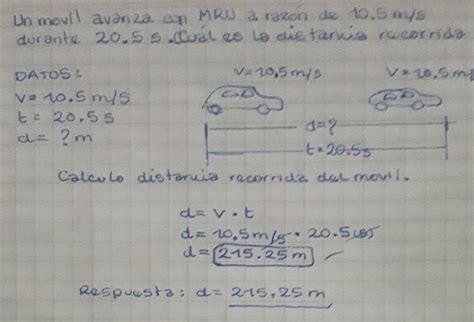 Un movil avanza con MRU a razón de 10.5 m/s
durante 20.5 s. Cuál es la distancia recorrida
DATOS:
V = 10.5 m/s
t = 20.5 s
d = ? m
V = 10,5 m/s
V = 10,5 m
d = ?
t = 20.5s
Calculo distancia recorrida del movil.
d = V · t
d = 10,5 m/s · 20.5 (s)
d = 215.25 m
Respuesta: d = 215,25 m